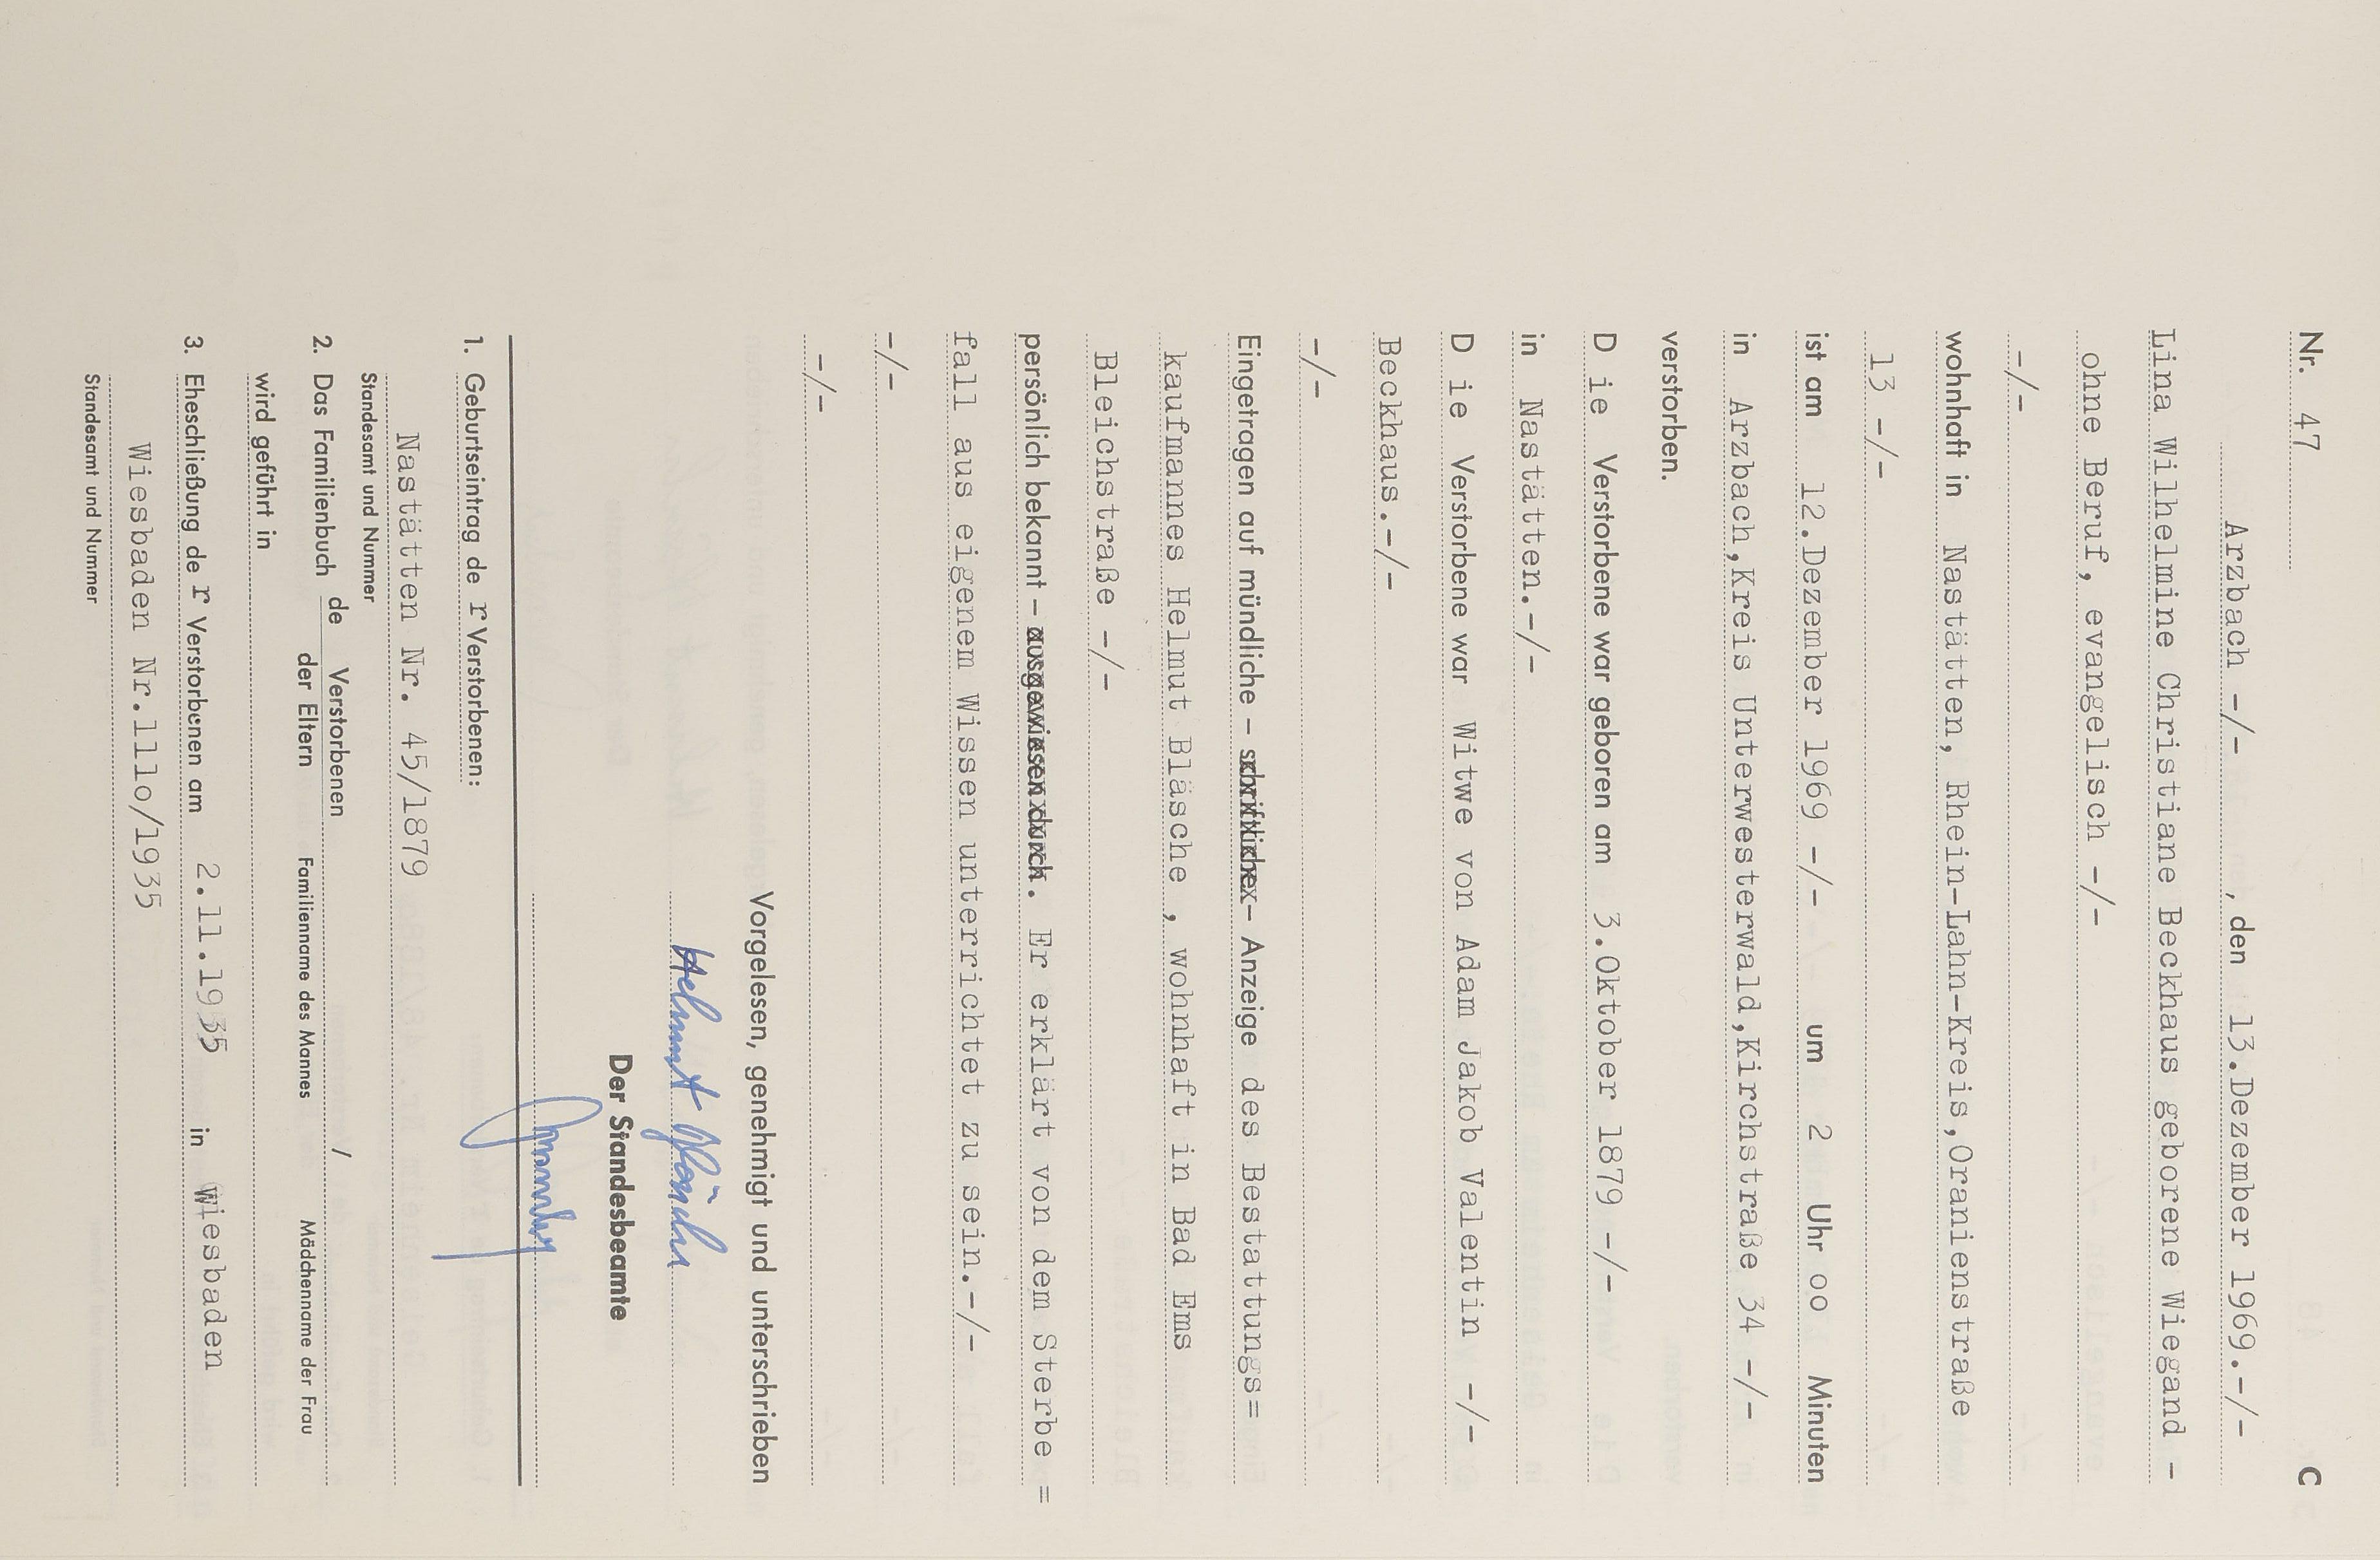 Nr. 47 C
Arzbach -/- , den 13.Dezember 1969.-/-
Lina Wilhelmine Christiane Beckhaus geborene Wiegand -
ohne Beruf, evangelisch -/-
-/-
wohnhaft in Nastätten, Rhein-Lahn-Kreis,Oranienstraße
13 -/-
ist am 12.Dezember 1969 -/- um 2 Uhr oo Minuten
in Arzbach,Kreis Unterwesterwald,Kirchstraße 34 -/-
verstorben.
D ie Verstorbene war geboren am 3.Oktober 1879 -/-
in Nastätten.-/-
D ie Verstorbene war Witwe von Adam Jakob Valentin -/-
Beckhaus.-/-
-/-
Eingetragen auf mündliche – schriftliche – Anzeige des Bestattungs=
kaufmannes Helmut Bläsche , wohnhaft in Bad Ems
Bleichstraße -/-
persönlich bekannt – ausgewiesen durch. Er erklärt von dem Sterbe =
fall aus eigenem Wissen unterrichtet zu sein.-/-
-/-
-/-
Vorgelesen, genehmigt und unterschrieben
Helmut Bläsche
Der Standesbeamte
1. Geburtseintrag de r Verstorbenen:
Nastätten Nr. 45/1879
Standesamt und Nummer
2. Das Familienbuch de Verstorbenen /
der Eltern Familienname des Mannes Mädchenname der Frau
wird geführt in
3. Eheschließung de r Verstorbenen am 2.11.1935 in Wiesbaden
Wiesbaden Nr.111o/1935
Standesamt und Nummer